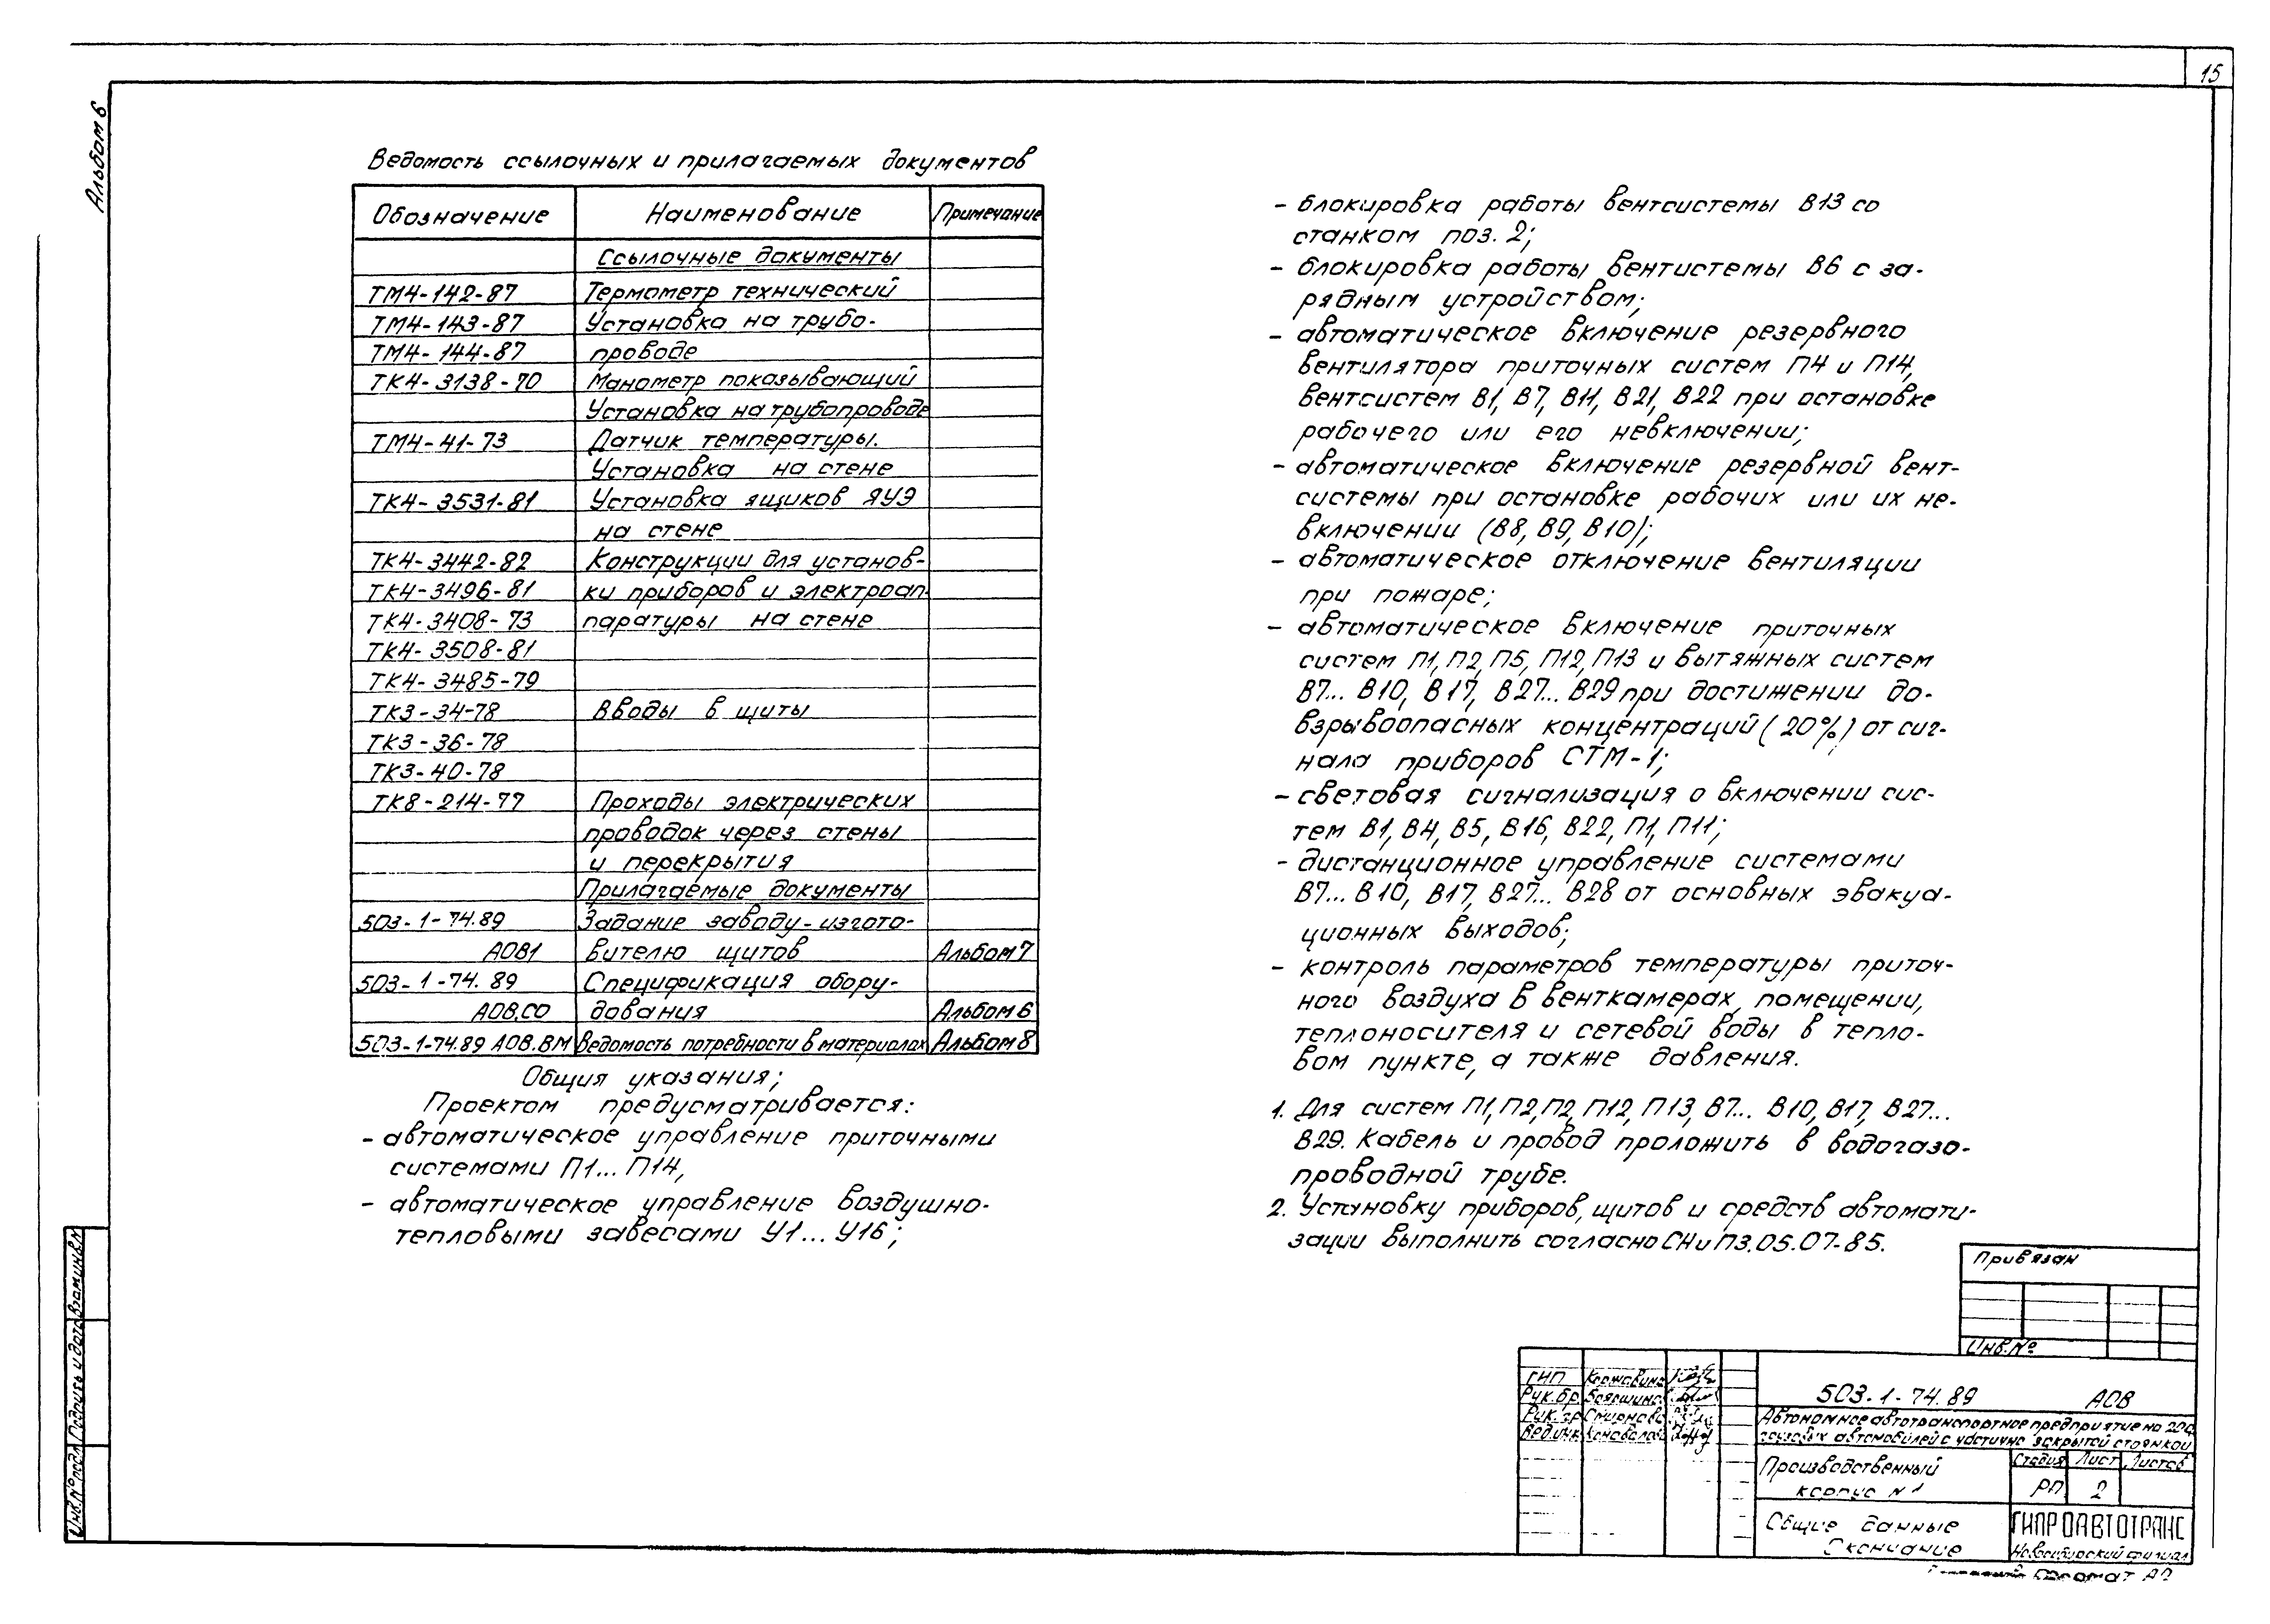 15
Альбом 6
Ведомость ссылочных и прилагаемых документов
Обозначение Наименование Примечание
Ссылочные документы
ТМ4-142-87 Термометр технический
ТМ4-143-87 Установка на трубо-
ТМ4-144-87 проводе
ТК4-3138-70 Манометр показывающий
Установка на трубопроводе
ТМ4-41-73 Датчик температуры.
Установка на стене
ТК4-3531-81 Установка ящиков ЯУЭ
на стене
ТК4-3442-82 Конструкции для установ-
ТК4-3496-81 ки приборов и электроап-
ТК4-3408-73 паратуры на стене
ТК4-3508-81
ТК4-3485-79
ТК3-34-78 Вводы в щиты
ТК3-36-78
ТК3-40-78
ТК8-214-77 Проходы электрических
проводок через стены
и перекрытия
Прилагаемые документы
503-1-74.89 Задание заводу-изгото-
АОВ1 вителю щитов Альбом 7
503-1-74.89 Спецификация обору-
АОВ.СО дования Альбом 6
503-1-74.89 АОВ.ВМ Ведомость потребности в материалах Альбом 8
Общия указания;
Проектом предусматривается:
- автоматическое управление приточными
системами П1...П14,
- автоматическое управление воздушно-
тепловыми завесами У1...У16;
- блокировка работы вентсистемы В13 со
станком поз. 2;
- блокировка работы вентистемы В6 с за-
рядным устройством;
- автоматическое включение резервного
вентилятора приточных систем П4 и П14,
вентсистем В1, В7, В11, В21, В22 при остановке
рабочего или его невключении;
- автоматическое включение резервной вент-
системы при остановке рабочих или их не-
включении (В8, В9, В10);
- автоматическое отключение вентиляции
при пожаре;
- автоматическое включение приточных
систем П1, П2, П5, П12, П13 и вытяжных систем
В7... В10, В17, В27... В29 при достижении до-
взрывоопасных концентраций (20%) от сиг-
нала приборов СТМ-1;
- световая сигнализация о включении сис-
тем В1, В4, В5, В16, В22, П1, П11;
- дистанционное управление системами
В7... В10, В17, В27... В28 от основных эвакуа-
ционных выходов;
- контроль параметров температуры приточ-
ного воздуха в венткамерах, помещении,
теплоносителя и сетевой воды в тепло-
вом пункте, а также давления.
1. Для систем П1, П2, П2, П12, П13, В7... В10, В17, В27...
В29. Кабель и провод проложить в водогазо-
проводной трубе.
2. Установку приборов, щитов и средств автомати-
зации выполнить согласно СНиП3.05.07-85.
Привязан
Инв.№
ГИП
Рук.бр
Рук.гр Смирнова
Вед.инж Коновалов
503-1-74.89 АОВ
Автономное автотранспортное предприятие на 200
грузовых автомобилей с частично закрытой стоянкой
Производственный
корпус №1
Стадия Лист Листов
РП 2
Общие данные
Окончание
ГИПРОАВТОТРАНС
Новосибирский филиал
Формат А2
Инв.№подл Подпись и дата Взам.инв.№